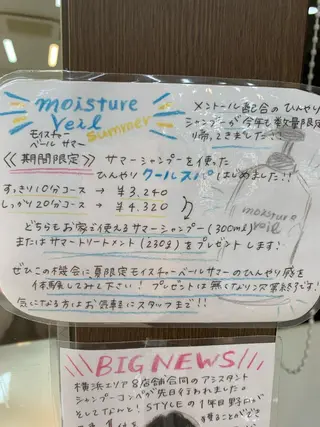 moisture veil summer
モイスチャーベール サマー
メントール配合のひんやり
シャンプーが今年も数量限定で
帰ってきました!!
《期間限定》 サマーシャンプーを使った
ひんやり クールスパ はじめました!!
すっきり10分コース → ¥3,240
しっかり20分コース → ¥4,320
moisture veil
どちらもお家で使えるサマーシャンプー(300ml)
またはサマートリートメント(230g)をプレゼントします!
ぜひこの機会に夏限定モイスチャーベールサマーのひんやり感を
体感してみて下さい! プレゼントは無くなり次第終了です!
気になる方はお気軽にスタッフまで!!
BIG NEWS
横浜エリア8店舗合同のアシスタント
シャンプーコンペが先日行われました。
そしてなんと! STYLEの1年目野口が